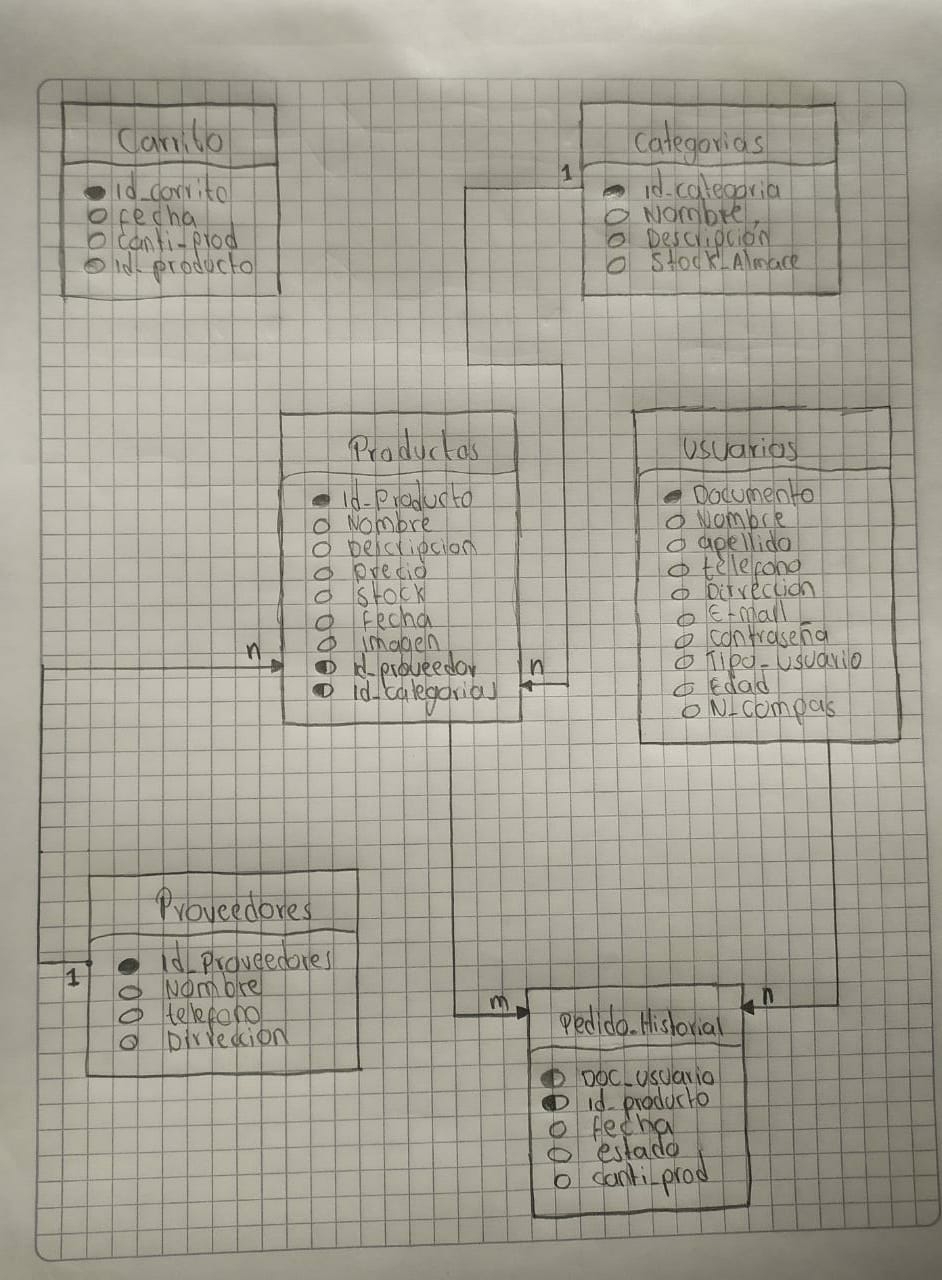 Carrito
Id_carrito
Fecha
Canti_prod
Id_producto
Categorias
1
id_categoria
Nombre
Descripción
Stock_Almace
Productos
Id_Producto
Nombre
Descripcion
precio
Stock
Fecha
Imagen
id_proveedor
id_categorias
n
n
Usuarios
Documento
Nombre
apellido
telefono
Dirreccion
E-mail
contraseña
Tipo_usuario
Edad
N_compas
Proveedores
1
Id_Proveedores
Nombre
telefono
Dirreccion
m
n
Pedido_Historial
Doc_usuario
id_producto
fecha
estado
canti_prod